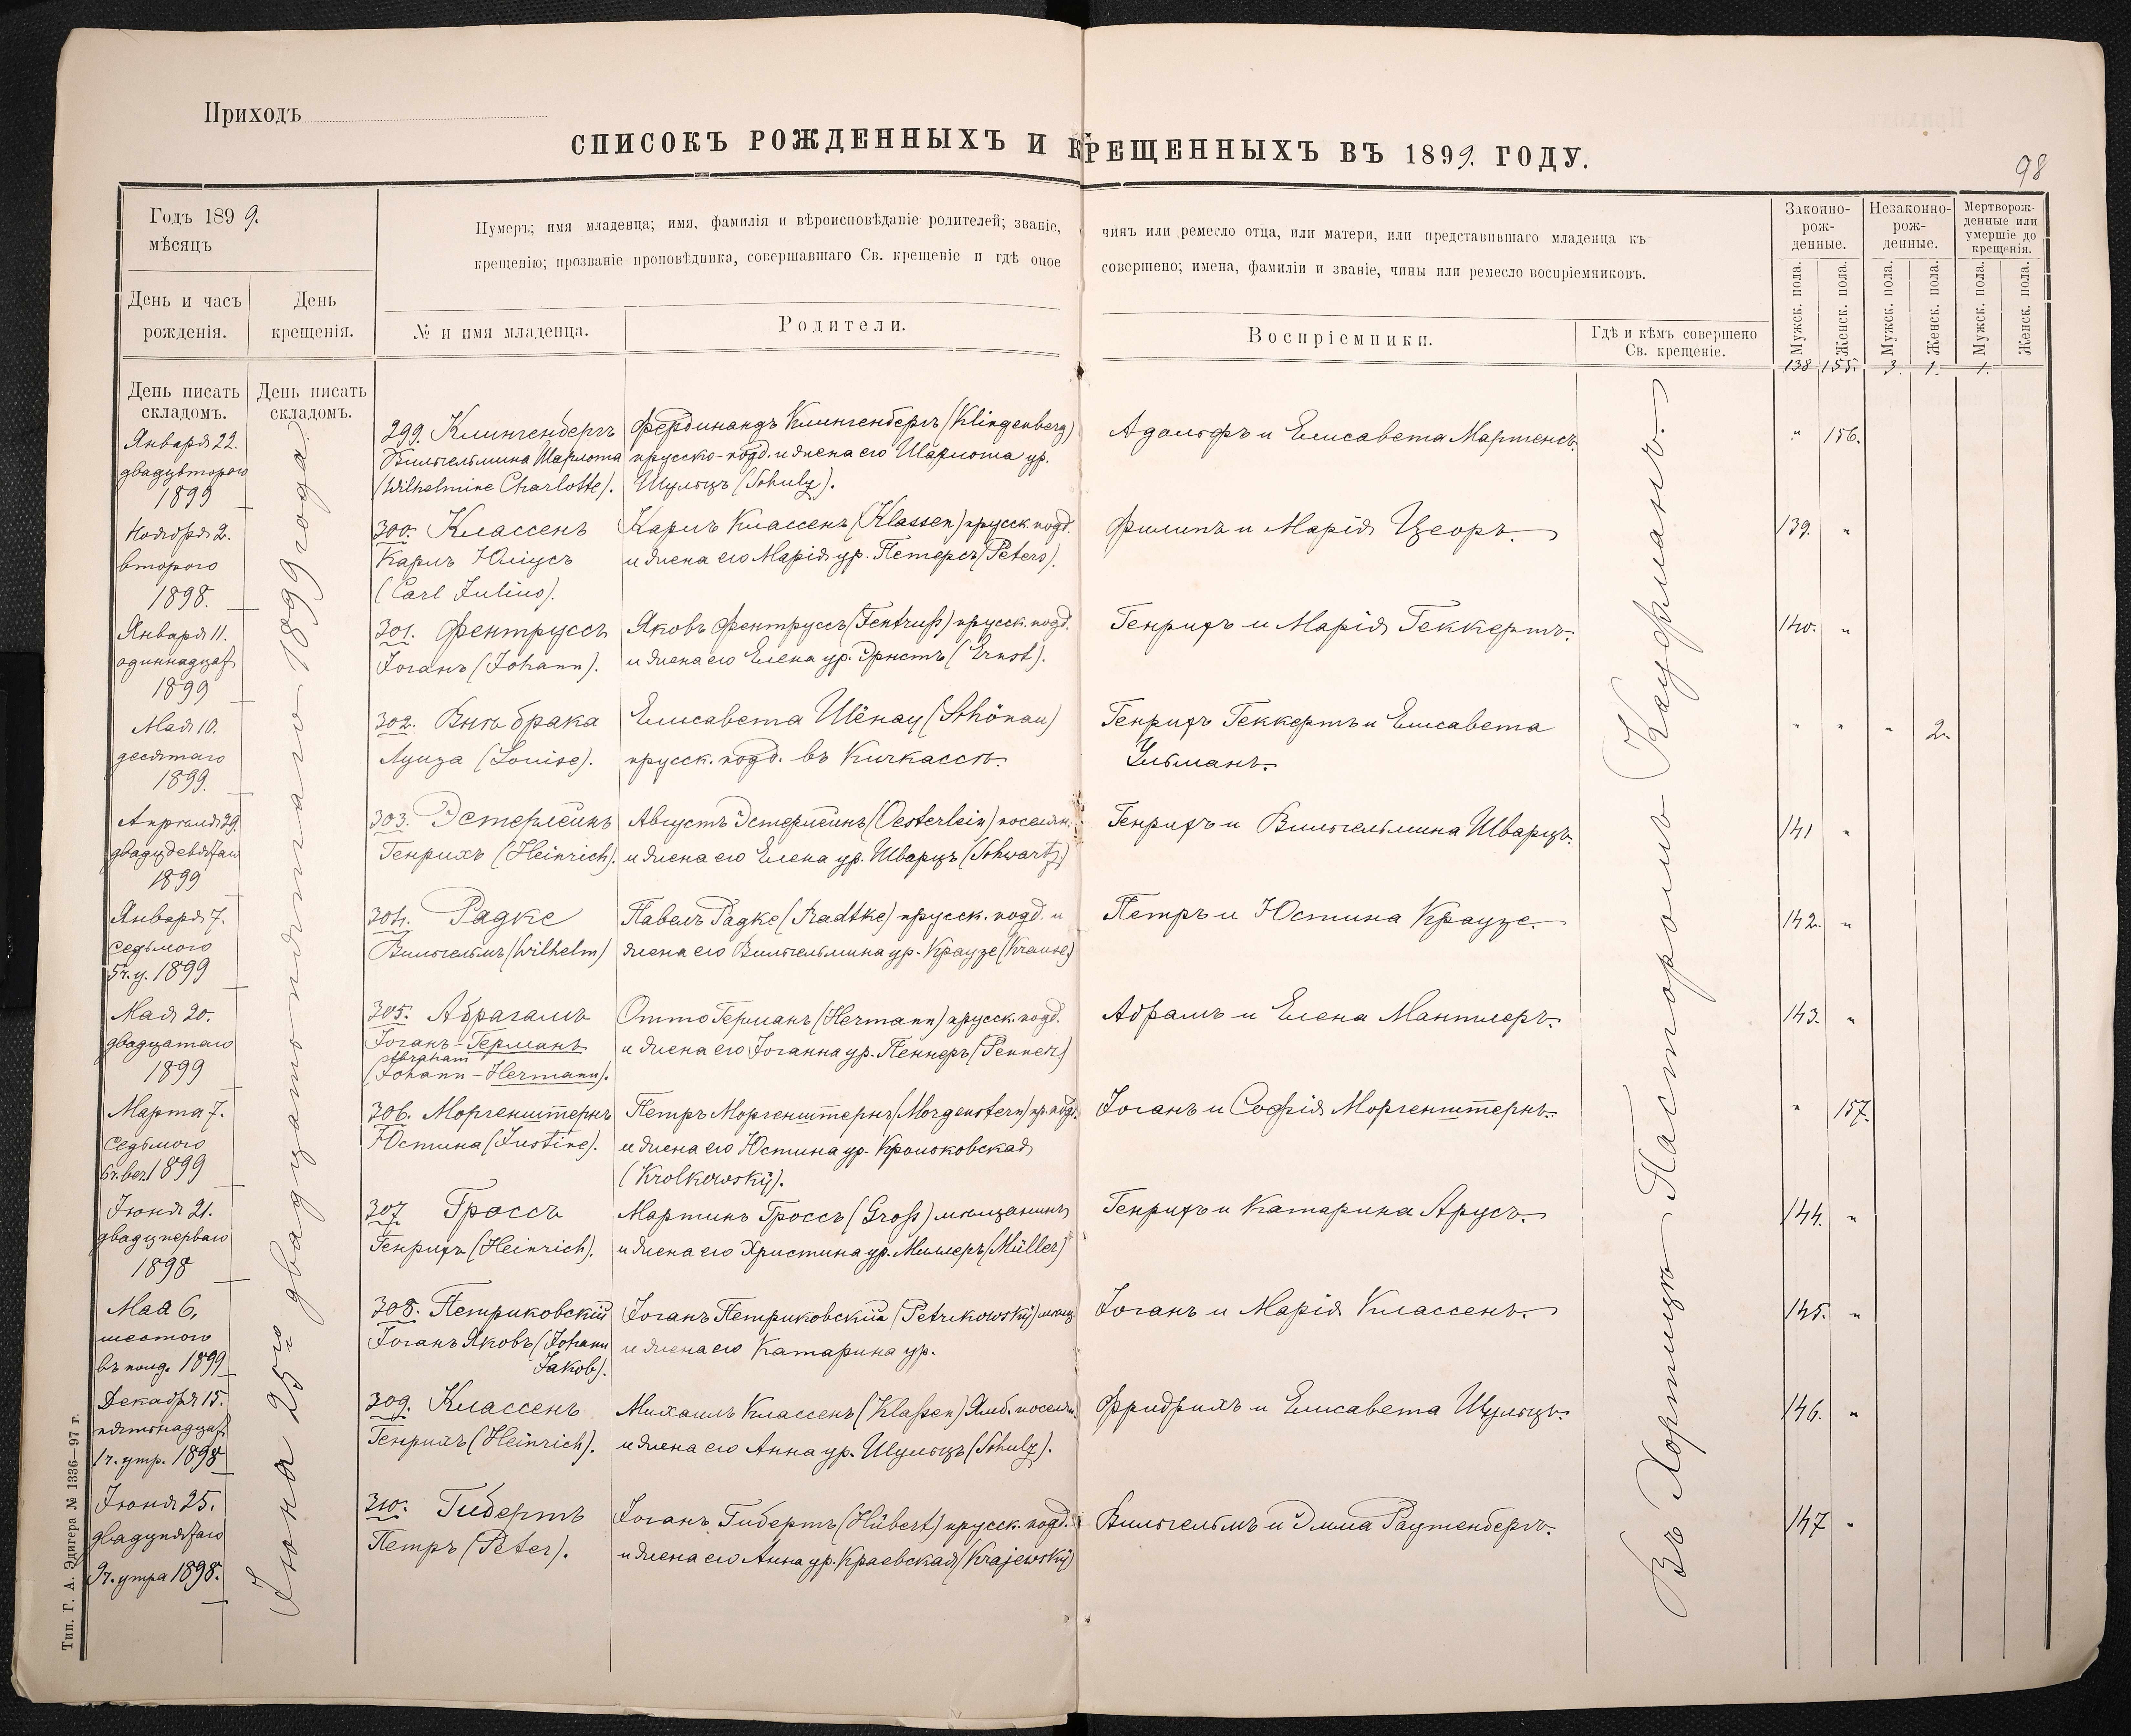 Приходъ
СПИСОКЪ РОЖДЕННЫХЪ И КРЕЩЕННЫХЪ ВЪ 1899. ГОДУ.
98
Годъ 1899.
мѣсяцъ
День и часъ
рожденія.
День
крещенія.
Нумеръ; имя младенца; имя, фамилія и вѣроисповѣданіе родителей; званіе,
крещенію; прозваніе проповѣдника, совершавшаго Св. крещеніе и гдѣ оное
№ и имя младенца.
Родители.
чинъ или ремесло отца, или матери, или представившаго младенца къ
совершено; имена, фамиліи и званіе, чины или ремесло воспріемниковъ.
Воспріемники.
Гдѣ и кѣмъ совершено
Св. крещеніе.
Законно-
рож-
денные.
Незаконно-
рож-
денные.
Мертворож-
денные или
умершіе до
крещенія.
Мужск. пола.
Женск. пола.
Мужск. пола.
Женск. пола.
Мужск. пола.
Женск. пола.
138 155. 3. 1. 1.
День писать
складомъ.
День писать
складомъ.
Іюня 25го двадцатопятаго 1899 года.
Въ Хортицѣ Пасторомъ Кауфманъ.
Января 22.
двадцвторого
1899
299. Клингенбергъ
Вильгельмина Шарлота
(Wilhelmine Charlotte).
Фердинандъ Клингенбергъ (Klingenberg)
прусско-подд. и жена его Шарлота ур.
Шульцъ (Schulz).
Адольфъ и Елисавета Мартенсъ.
" 156.
Ноября 2.
второго
1898.
300. Классенъ
Карлъ Юліусъ
(Carl Julius).
Карлъ Классенъ (Klassen) прусск. подд.
и жена его Марія ур. Петерсъ (Peters).
Филипъ и Марія Цеоръ.
139. "
Января 11.
одиннадцат
1899
301. Фентруссъ
Іоганъ (Johann).
Яковъ Фентруссъ (Fentruß) прусск. подд.
и жена его Елена ур. Эрнстъ (Ernst).
Генрихъ и Марія Геккертъ.
140. "
Мая 10.
десятаго
1899.
302. Внѣ брака
Луиза (Louise).
Елисавета Шёнау (Schönau)
прусск. подд. въ Кичкассѣ.
Генрихъ Геккертъ и Елисавета
Ульманъ.
" " " 2.
Апрѣля 29.
двадцдевятаго
1899
303. Эстерлейнъ
Генрихъ (Heinrich).
Августъ Эстерлейнъ (Oesterlein) поселян.
и жена его Елена ур. Шварцъ (Schwartz)
Генрихъ и Вильгельмина Шварцъ.
141 "
Января 7.
седьмого
5ч. у. 1899
304. Радке
Вильгельмъ (Wilhelm)
Павелъ Радке (Radtke) прусск. подд. и
жена его Вильгельмина ур. Краузе (Krause)
Петръ и Юстина Краузе.
142. "
Мая 20.
двадцатаго
1899
305. Абрагамъ
Іоганъ-Германъ
Abraham
(Johann-Hermann).
Отто Германъ (Hermann) прусск. подд.
и жена его Іоганна ур. Пеннеръ (Penner)
Абрамъ и Елена Мантлеръ.
143. "
Марта 7.
седьмого
6ч. веч. 1899
306. Моргенштернъ
Юстина (Justine).
Петръ Моргенштернъ (Morgenstern) пр. подд.
и жена его Юстина ур. Крольковская
(Krolkowsky).
Іоганъ и Софія Моргенштернъ.
" 157.
Іюня 21.
двадцперваго
1898
307 Гроссъ
Генрихъ (Heinrich).
Мартинъ Гроссъ (Groß) мѣщанинъ
и жена его Христина ур. Миллеръ (Müller)
Генрихъ и Катарина Арусъ.
144. "
Мая 6,
шестого
въ полд. 1899
308. Петриковскій
Іоганъ Яковъ (Johann
Jakob).
Іоганъ Петриковскій (Petrikowsky) мѣщ.
и жена его Катарина ур.
Іоганъ и Марія Классенъ.
145. "
Декабря 15.
пятнадцат
1ч. утр. 1898
309. Классенъ
Генрихъ (Heinrich).
Михаилъ Классенъ (Klaßen) Ямб. поселян.
и жена его Анна ур. Шульцъ (Schulz).
Фридрихъ и Елисавета Шульцъ.
146. "
Іюня 25.
двадцпятаго
9ч. утра 1898.
310. Гибертъ
Петръ (Peter).
Іоганъ Гибертъ (Hübert) прусск. подд.
и жена его Анна ур. Краевская (Krajewsky)
Вильгельмъ и Эмма Раутенбергъ.
147 "
Тип. Г. А. Эдигера № 1336—97 г.